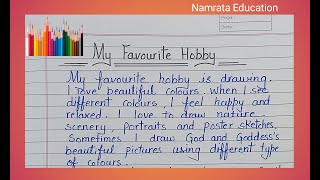 Namrata Education
My Favourite Hobby
My favourite hobby is drawing.
I love beautiful colours. When I see
different colours, I feel happy and
relaxed. I love to draw nature
scenery, portraits and poster sketches.
Sometimes I draw God and Goddess's
beautiful pictures using different type
of colours.